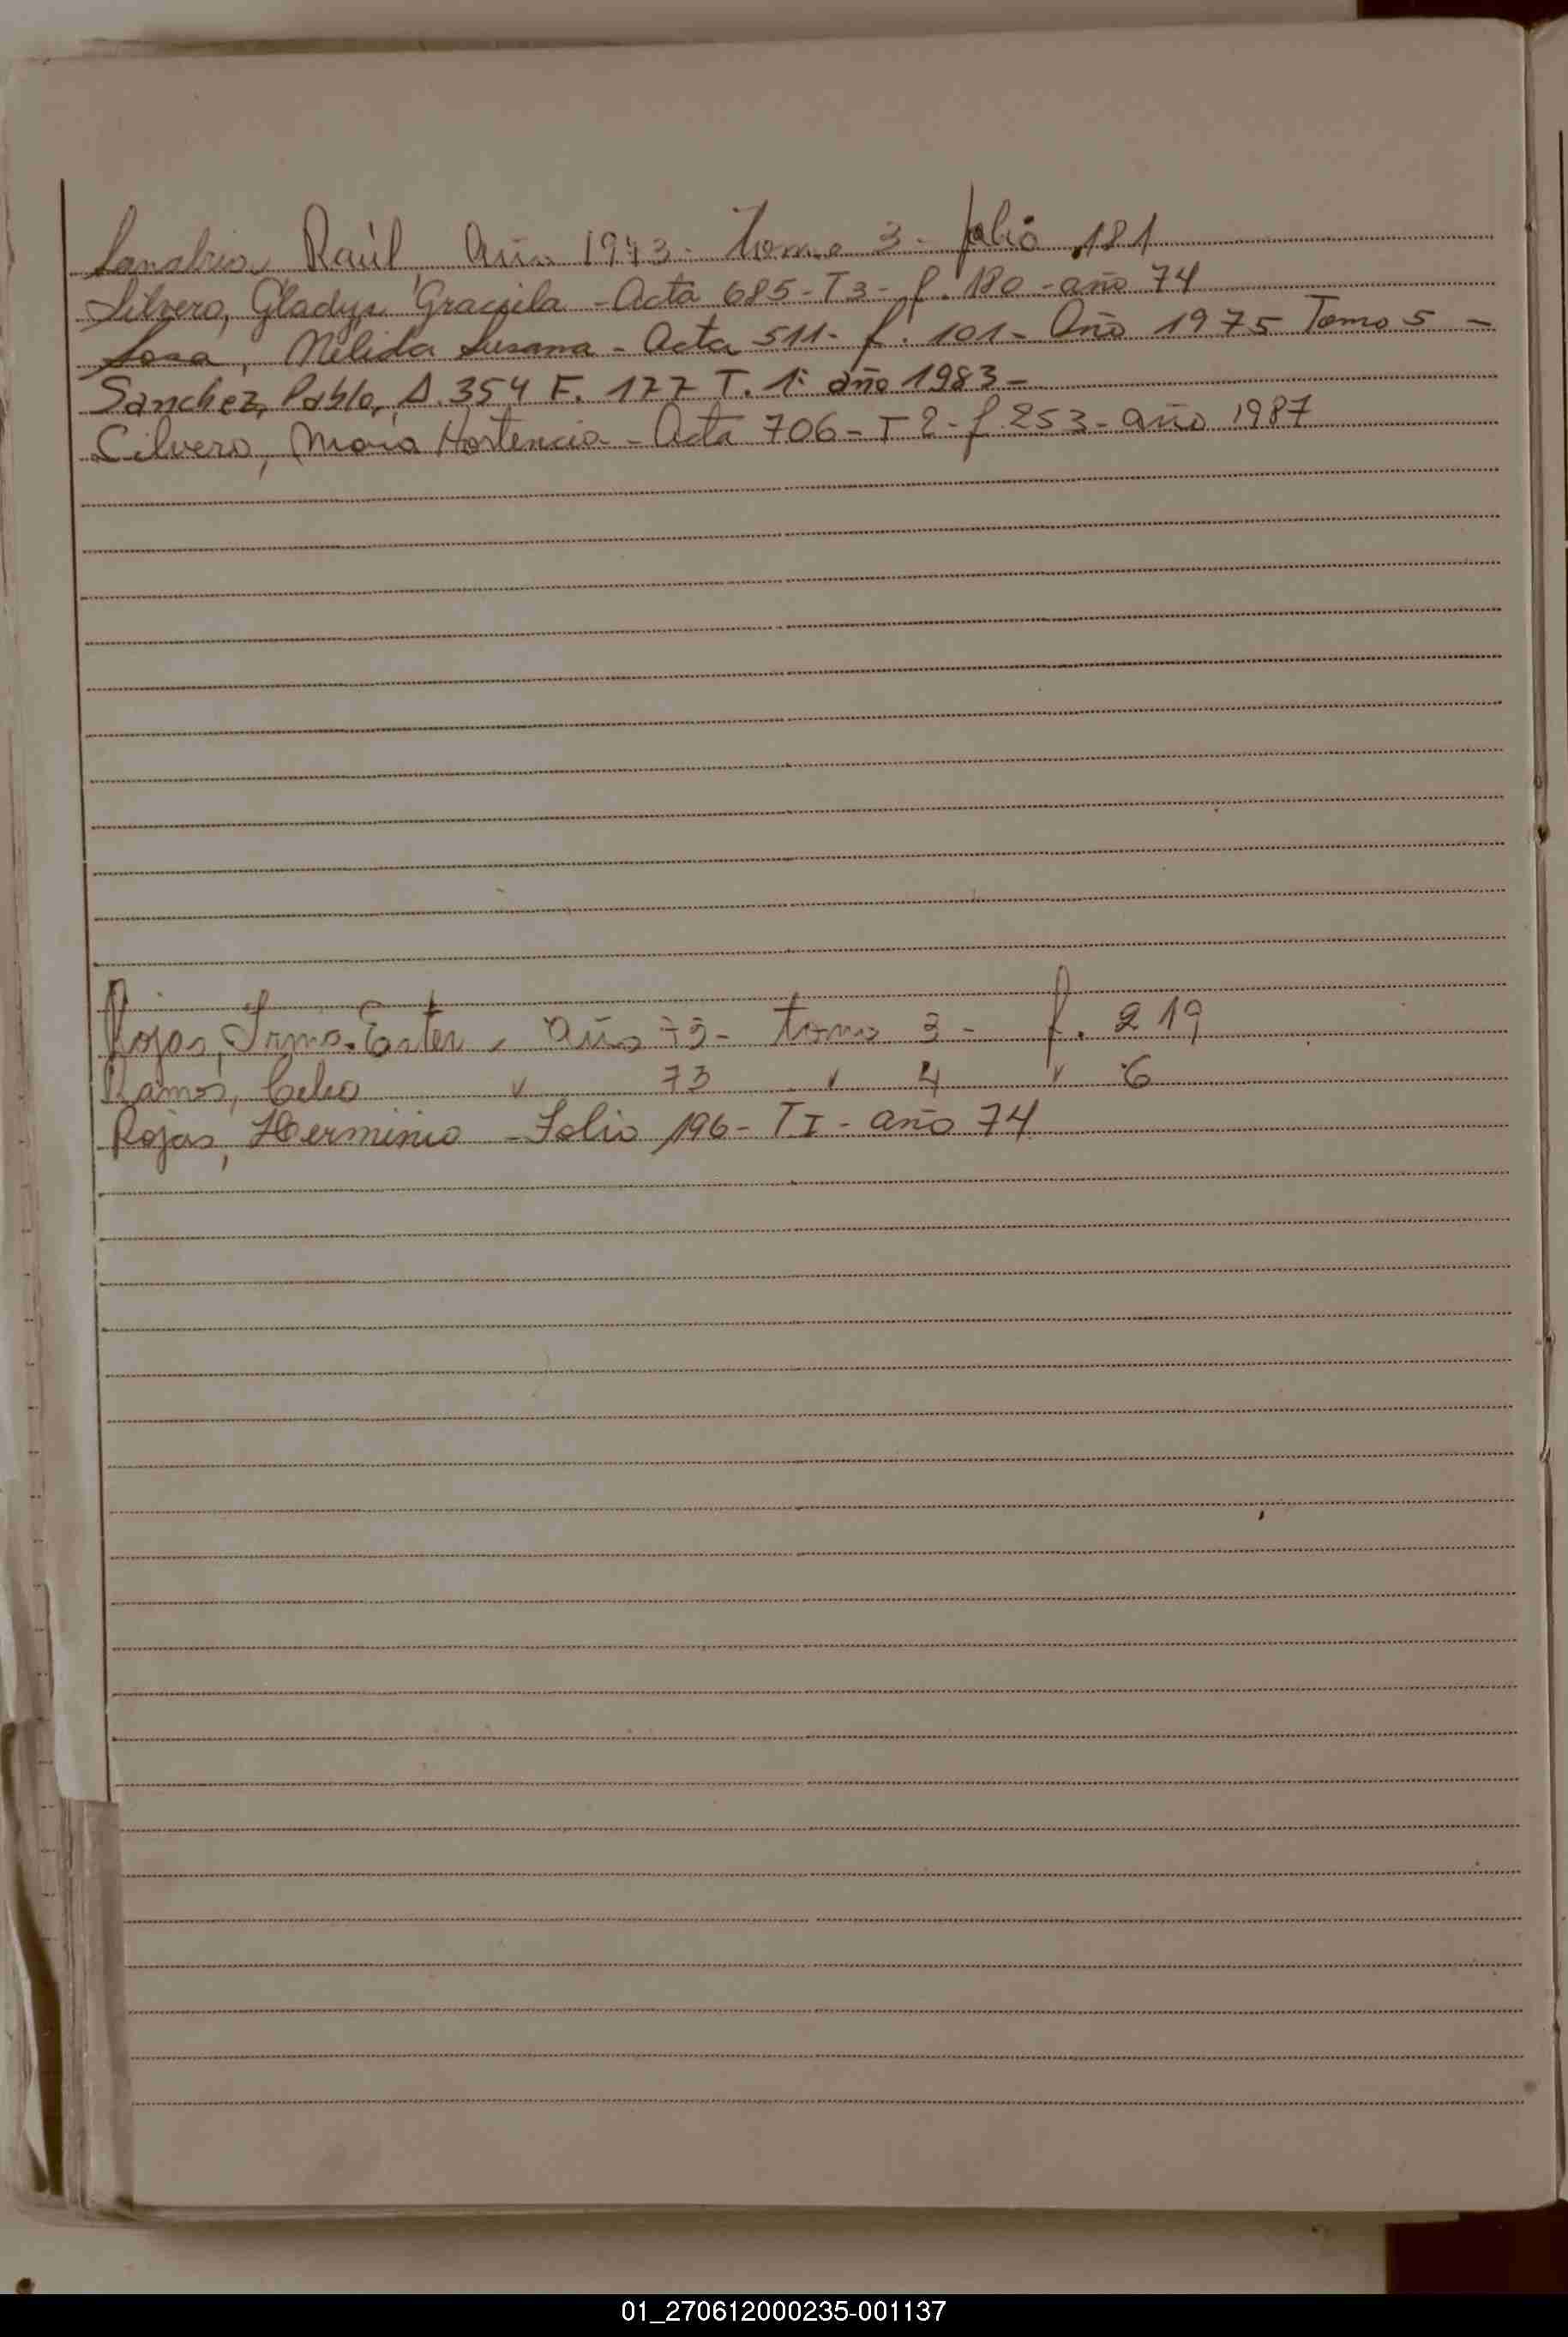 Sanabria, Raúl Año 1973- Tomo 3- folio 181
Silvero, Gladys Graciela - Acta 685- T3- f. 180 - año 74
Sosa, Nélida Susana - Acta 511- f. 101- Año 1975 Tomo 5 -
Sanchez, Pablo, A. 354 F. 177 T. 1º año 1983-
Silvero, María Hortencia - Acta 706- T 2- f. 253- año 1987
Rojas, Irma Ester, año 73- tomo 3- f. 219
Ramos, Celso " 73 " 4 " 6
Rojas, Herminio - Folio 196- T I - año 74
01_270612000235-001137